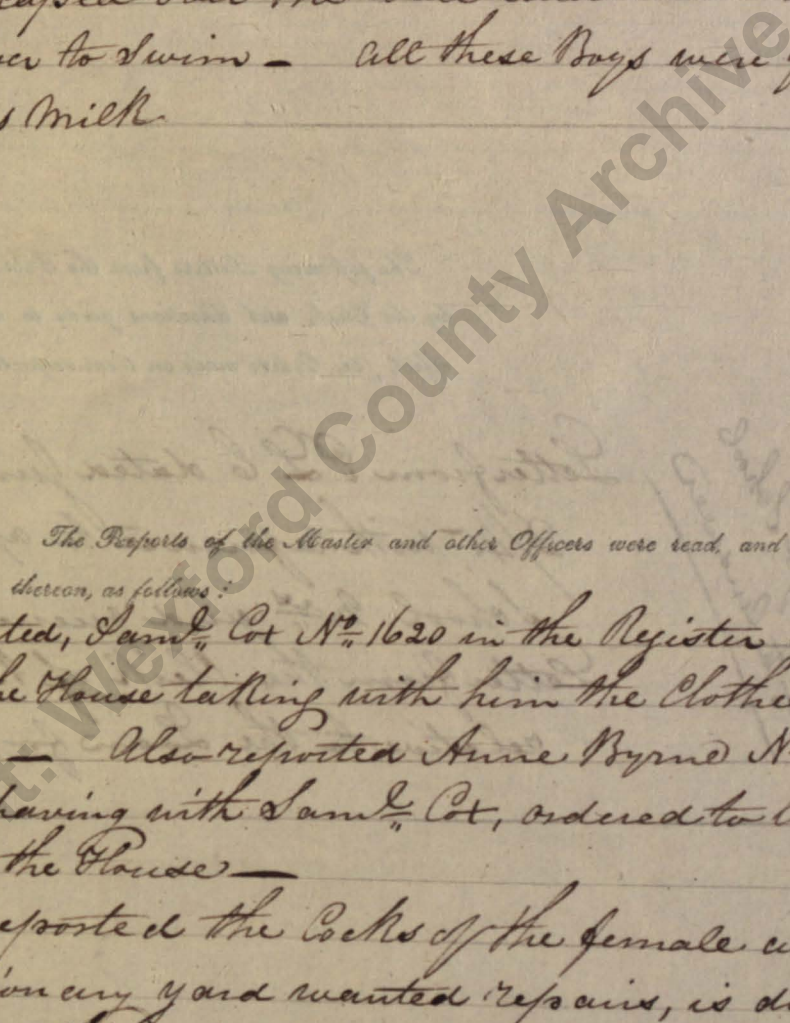 over the
to Swim — All these Boys were
Milk
The Reports of the Master and other Officers were read, and
thereon, as follows:
ted, Saml. Cox No. 1620 in the Register
he House taking with him the Clothe
— Also reported Anne Byrne N
having with Saml. Cox, ordered to
the House —
eported the Cocks of the female
onary yard wanted repairs, is d
Wexford County Archive